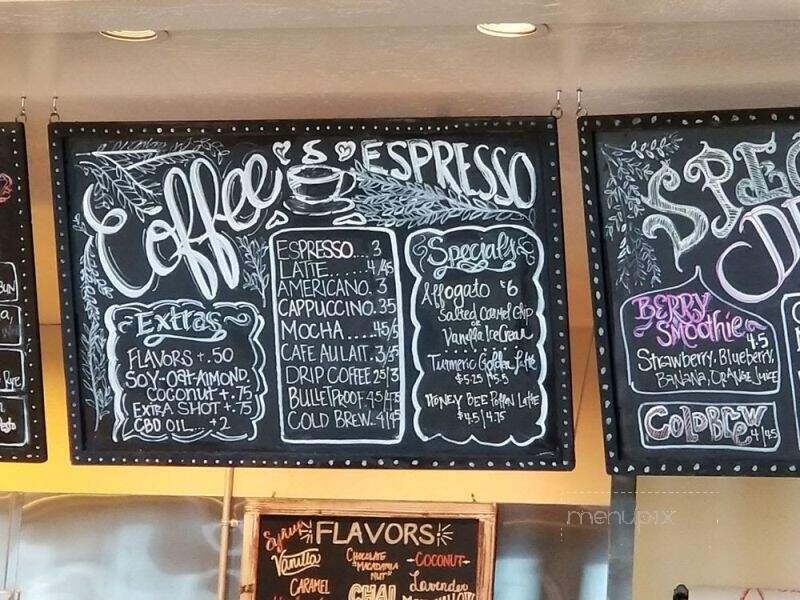 Coffee
ESPRESSO
Extras
FLAVORS +.50
SOY-OAT-ALMOND,
COCONUT +.75
EXTRA SHOT +.75
CBD OIL... +2
ESPRESSO.... 3
LATTE....... 4/45
AMERICANO. 3
CAPPUCCINO. 35
MOCHA..... 45/5
CAFE AU LAIT. 3/35
DRIP COFFEE 25/3
BULLETPROOF 45/475
COLD BREW.. 4/45
Specials
Affogato $6
Salted Caramel Chip
or
Vanilla Ice Cream
Turmeric Golden Latte
$5.25 / $5.5
Honey Bee Pollen Latte
$4.5 / 4.75
BERRY
SMOOTHIE
4.5
Strawberry, Blueberry,
BANANA, ORANGE JUICE
COLDBREW
4/45
Syrups
FLAVORS
Vanilla
CARAMEL
CHOCOLATE
MACADAMIA
NUT
CHAI
COCONUT
Lavender
menupix